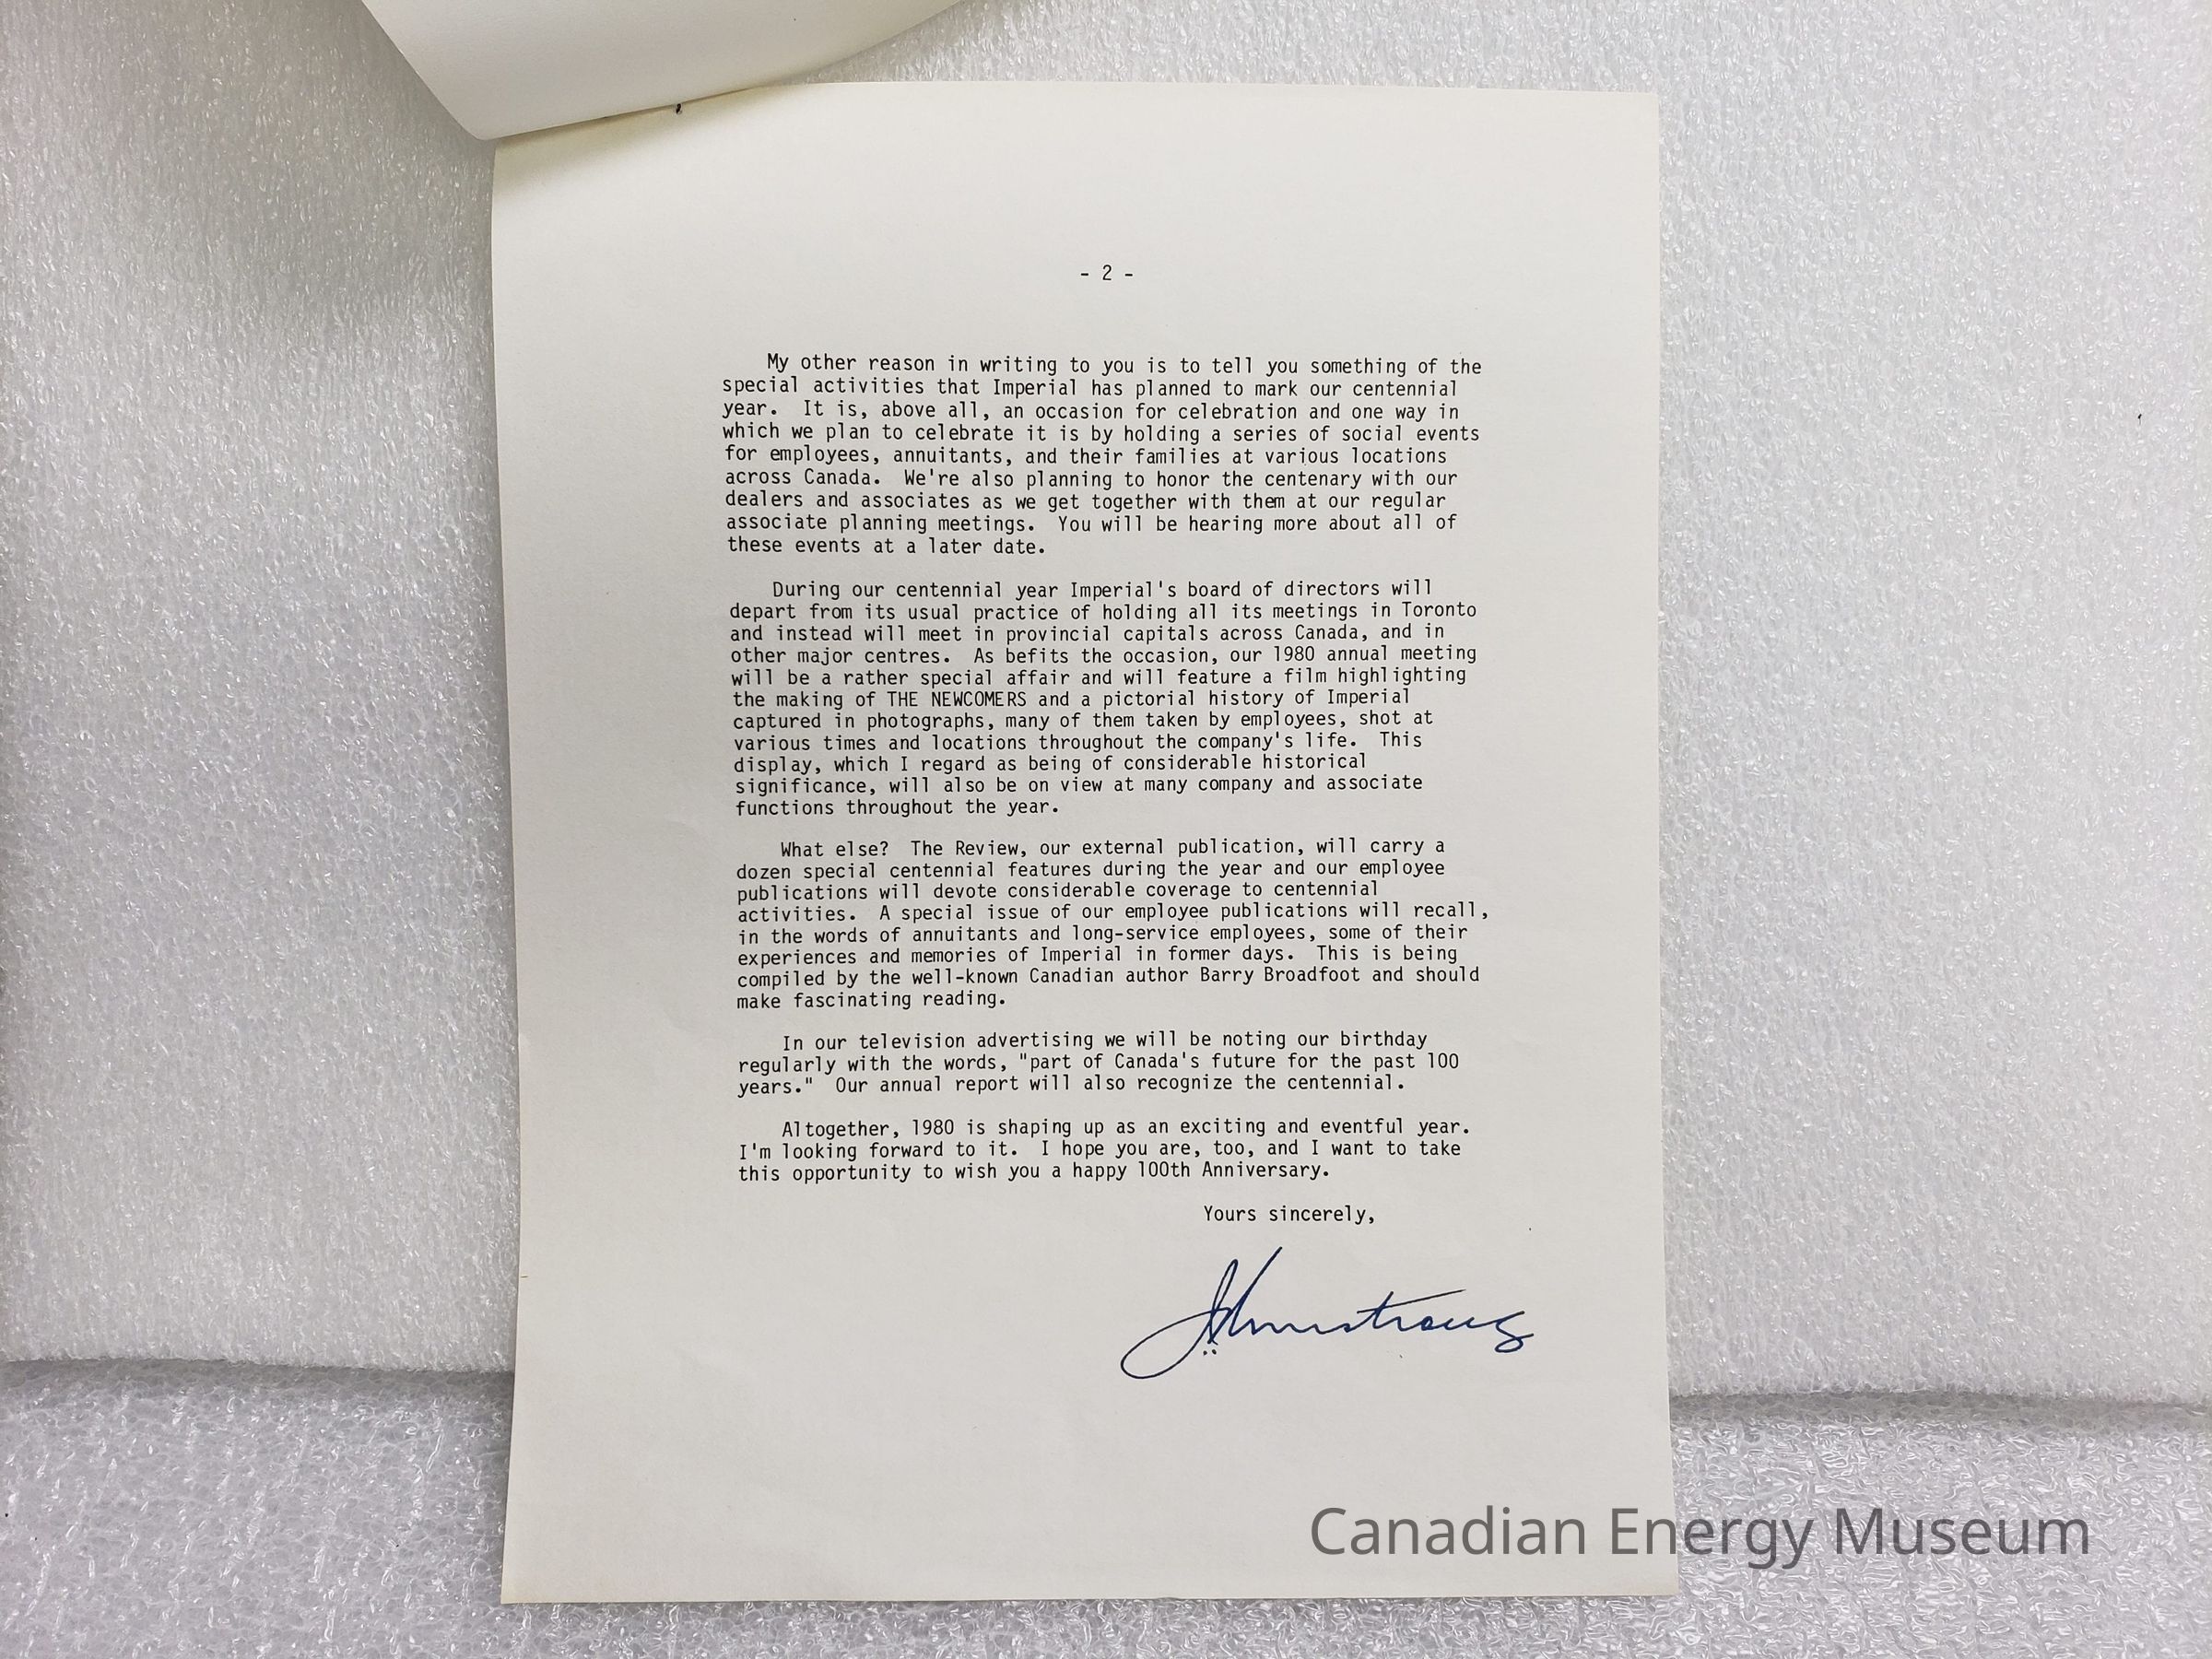 - 2 -
My other reason in writing to you is to tell you something of the
special activities that Imperial has planned to mark our centennial
year.  It is, above all, an occasion for celebration and one way in
which we plan to celebrate it is by holding a series of social events
for employees, annuitants, and their families at various locations
across Canada.  We're also planning to honor the centenary with our
dealers and associates as we get together with them at our regular
associate planning meetings.  You will be hearing more about all of
these events at a later date.
During our centennial year Imperial's board of directors will
depart from its usual practice of holding all its meetings in Toronto
and instead will meet in provincial capitals across Canada, and in
other major centres.  As befits the occasion, our 1980 annual meeting
will be a rather special affair and will feature a film highlighting
the making of THE NEWCOMERS and a pictorial history of Imperial
captured in photographs, many of them taken by employees, shot at
various times and locations throughout the company's life.  This
display, which I regard as being of considerable historical
significance, will also be on view at many company and associate
functions throughout the year.
What else?  The Review, our external publication, will carry a
dozen special centennial features during the year and our employee
publications will devote considerable coverage to centennial
activities.  A special issue of our employee publications will recall,
in the words of annuitants and long-service employees, some of their
experiences and memories of Imperial in former days.  This is being
compiled by the well-known Canadian author Barry Broadfoot and should
make fascinating reading.
In our television advertising we will be noting our birthday
regularly with the words, "part of Canada's future for the past 100
years."  Our annual report will also recognize the centennial.
Altogether, 1980 is shaping up as an exciting and eventful year.
I'm looking forward to it.  I hope you are, too, and I want to take
this opportunity to wish you a happy 100th Anniversary.
Yours sincerely,
JArmstrong
Canadian Energy Museum